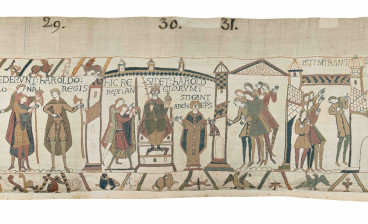 29. 30. 31.
DERVNT: HAROLDO:
NA: REGIS
HIC RE SIDET: HAROLD
REX: AN GLORVM:
STIGANT
ARChI EPS
ISTI MIRANT